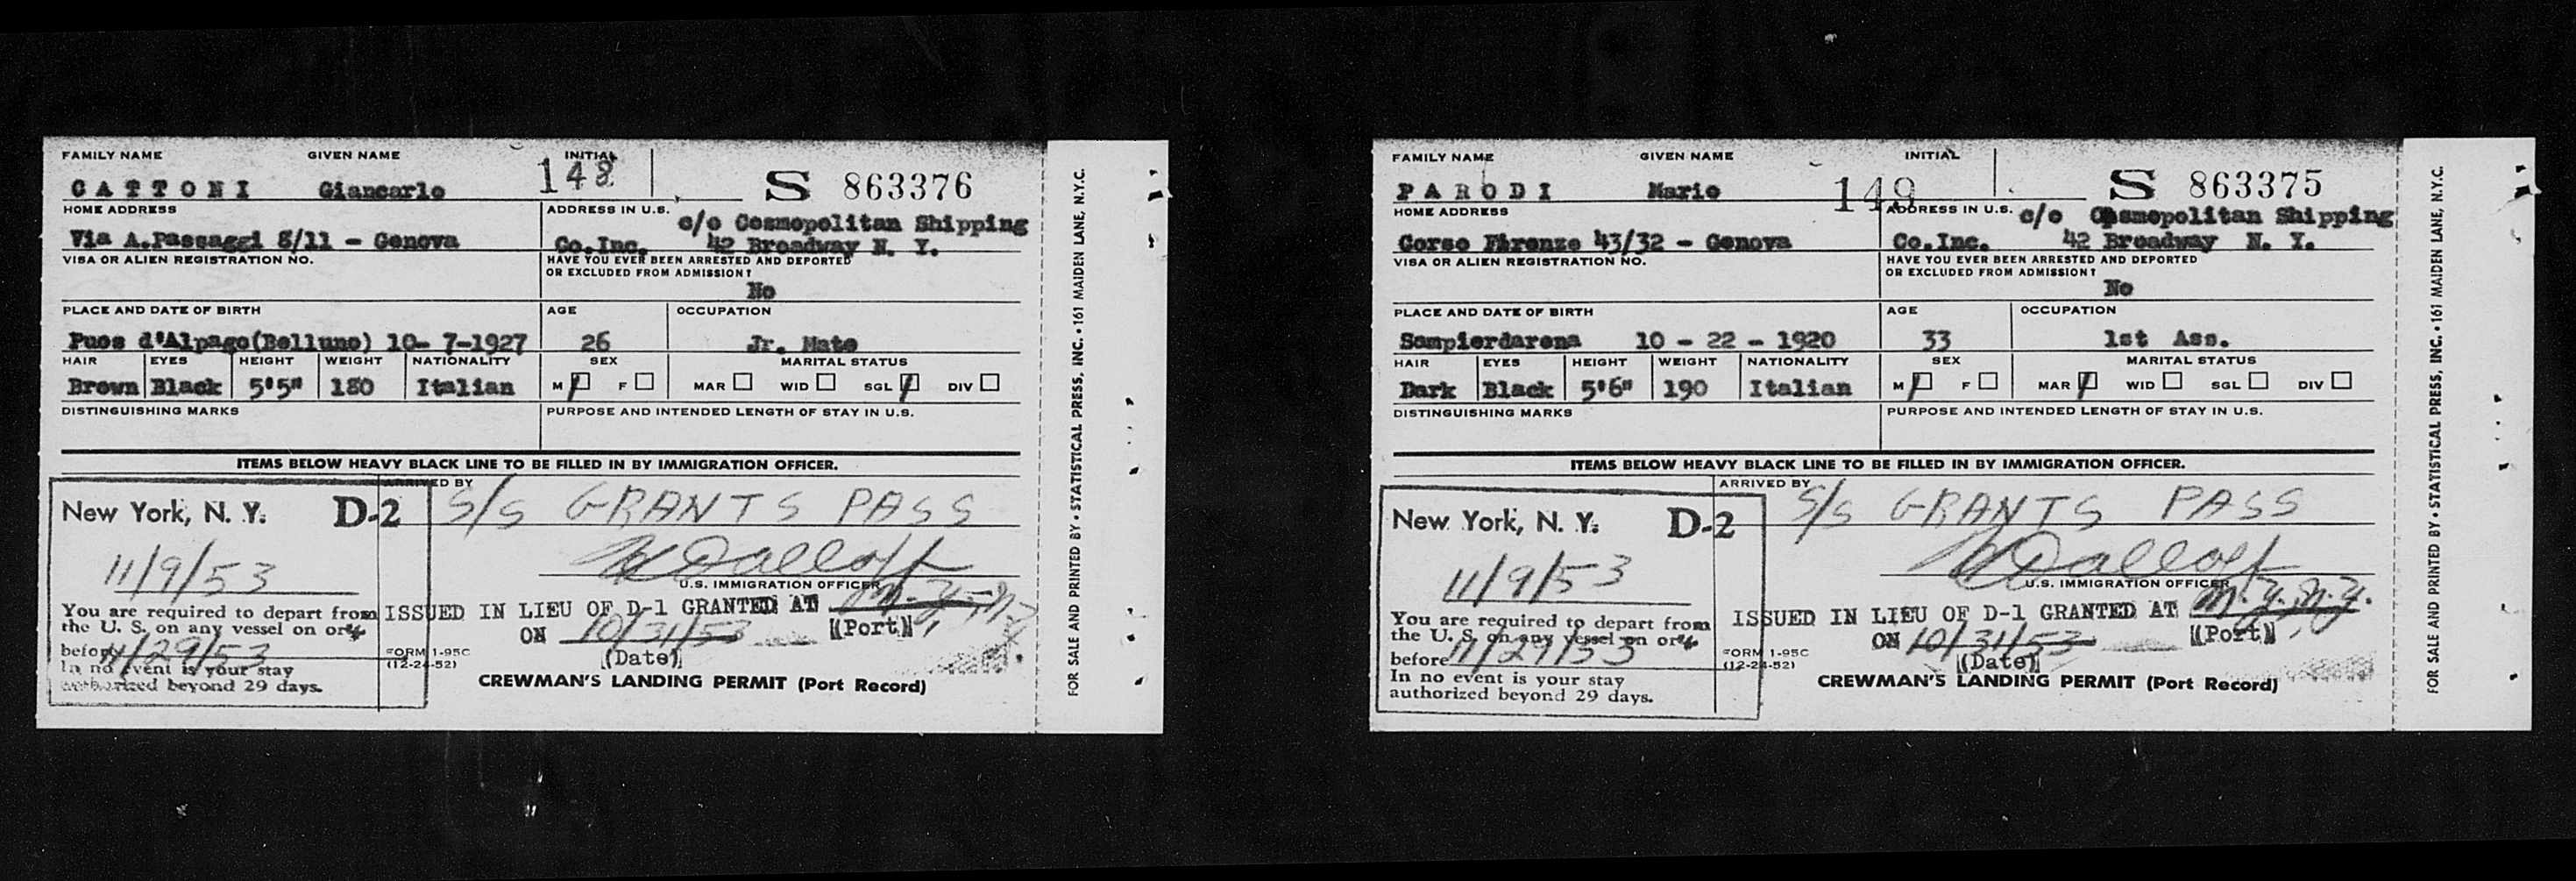 FAMILY NAME GIVEN NAME INITIAL
148
CATTONI Giancarlo
S 863376
HOME ADDRESS ADDRESS IN U.S.
c/o Cosmopolitan Shipping
Via A.Passaggi 8/11 - Genova Co.Inc. 42 Broadway N. Y.
VISA OR ALIEN REGISTRATION NO. HAVE YOU EVER BEEN ARRESTED AND DEPORTED
OR EXCLUDED FROM ADMISSION?
No
PLACE AND DATE OF BIRTH AGE OCCUPATION
Puos d'Alpago(Belluno) 10- 7-1927 26 Jr. Mate
HAIR EYES HEIGHT WEIGHT NATIONALITY SEX MARITAL STATUS
Brown Black 5'5" 180 Italian M F MAR WID SGL DIV
DISTINGUISHING MARKS PURPOSE AND INTENDED LENGTH OF STAY IN U.S.
ITEMS BELOW HEAVY BLACK LINE TO BE FILLED IN BY IMMIGRATION OFFICER.
ARRIVED BY
New York, N. Y. D-2 S/S GRANTS PASS
11/9/53
U.S. IMMIGRATION OFFICER
You are required to depart from
the U. S. on any vessel on or
before 11/29/53
In no event is your stay
authorized beyond 29 days.
ISSUED IN LIEU OF D-1 GRANTED AT N.Y., N.Y.
(Port)
ON 10/31/53
(Date)
FORM 1-95C
(12-24-52)
CREWMAN'S LANDING PERMIT (Port Record)
FOR SALE AND PRINTED BY • STATISTICAL PRESS, INC. • 161 MAIDEN LANE, N.Y.C.
FAMILY NAME GIVEN NAME INITIAL
PARODI Mario 149
S 863375
HOME ADDRESS ADDRESS IN U.S.
c/o Cosmopolitan Shipping
Corso Firenze 43/32 - Genova Co.Inc. 42 Broadway N. Y.
VISA OR ALIEN REGISTRATION NO. HAVE YOU EVER BEEN ARRESTED AND DEPORTED
OR EXCLUDED FROM ADMISSION?
No
PLACE AND DATE OF BIRTH AGE OCCUPATION
Sampierdarena 10 - 22 - 1920 33 1st Ass.
HAIR EYES HEIGHT WEIGHT NATIONALITY SEX MARITAL STATUS
Dark Black 5'6" 190 Italian M F MAR WID SGL DIV
DISTINGUISHING MARKS PURPOSE AND INTENDED LENGTH OF STAY IN U.S.
ITEMS BELOW HEAVY BLACK LINE TO BE FILLED IN BY IMMIGRATION OFFICER.
ARRIVED BY
New York, N. Y. D-2 S/S GRANTS PASS
11/9/53
U.S. IMMIGRATION OFFICER
You are required to depart from
the U. S. on any vessel on or
before 11/29/53
In no event is your stay
authorized beyond 29 days.
ISSUED IN LIEU OF D-1 GRANTED AT N.Y. N.Y.
(Port)
ON 10/31/53
(Date)
FORM 1-95C
(12-24-52)
CREWMAN'S LANDING PERMIT (Port Record)
FOR SALE AND PRINTED BY • STATISTICAL PRESS, INC. • 161 MAIDEN LANE, N.Y.C.